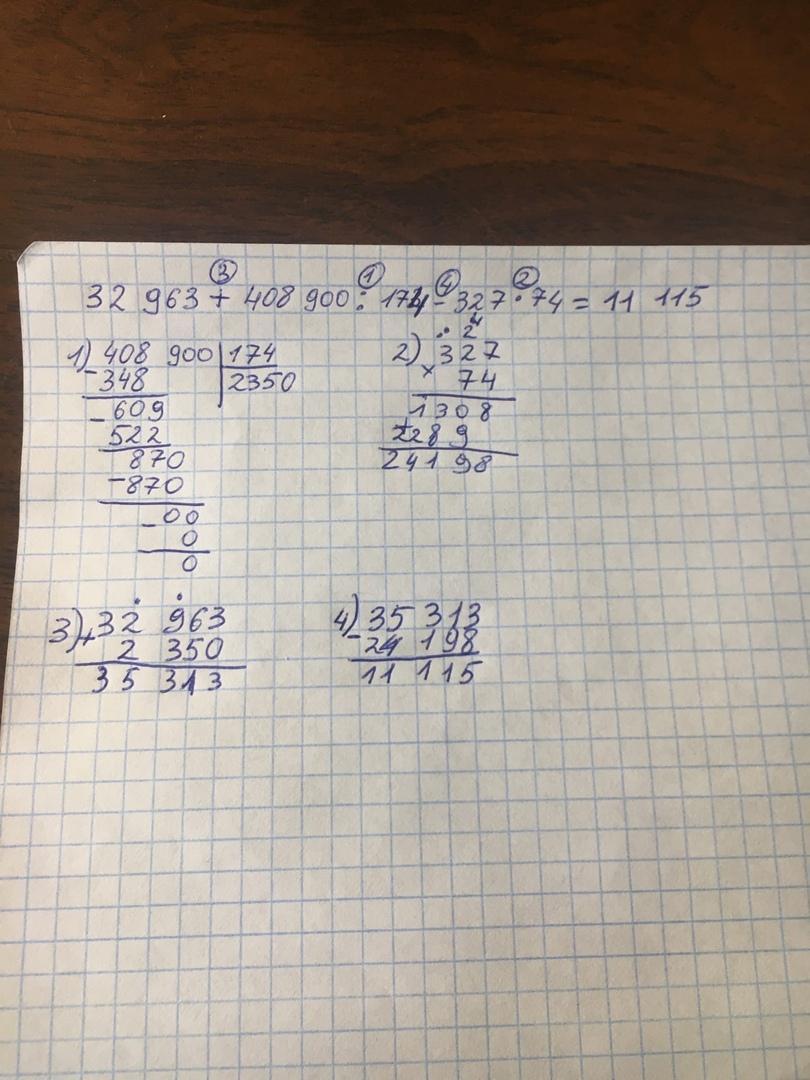 ③ ① ④ ②
32 963 + 408 900 : 174 - 327 · 74 = 11 115
1) 408 900 | 174
- 348 | 2350
- 609
522
870
- 870
- 00
0
0
2) 327
× 74
1308
+ 2289
24198
3) 32 963
+ 2 350
35 313
4) 35 313
- 24 198
11 115